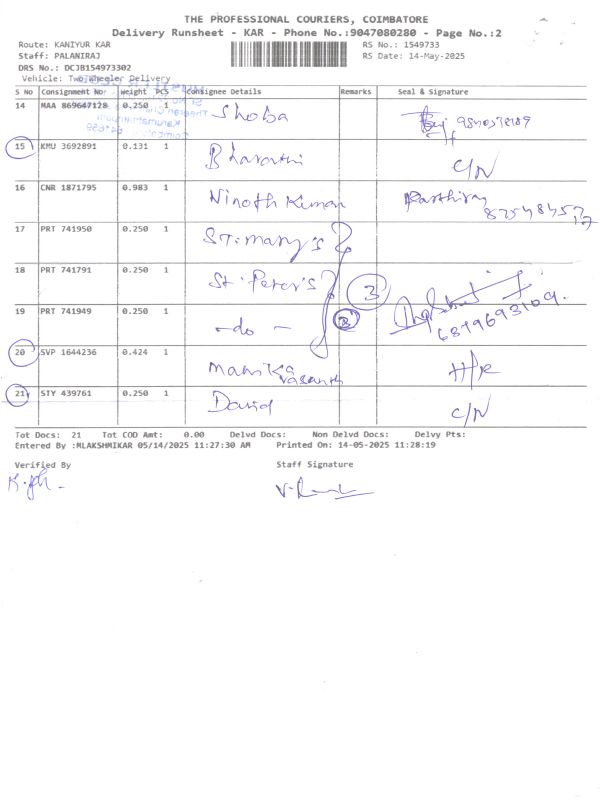 THE PROFESSIONAL COURIERS, COIMBATORE
Delivery Runsheet - KAR - Phone No.:9047080280 - Page No.:2
Route: KANIYUR KAR
RS No.: 1549733
Staff: PALANIRAJ
RS Date: 14-May-2025
DRS No.: DCJB154973302
Vehicle: Two Wheeler Delivery
S No Consignment No Weight PCS Consignee Details Remarks Seal & Signature
14 MAA 869647128 0.250 1 Shoba
15 KMU 3692891 0.131 1 Bharathi C/N
16 CNR 1871795 0.983 1 Vinoth Kumar
17 PRT 741950 0.250 1 ST. mary's
18 PRT 741791 0.250 1 St. Peter's 3
19 PRT 741949 0.250 1 -do-
20 SVP 1644236 0.424 1 Vasanth
21 STY 439761 0.250 1 David C/N
Tot Docs: 21 Tot COD Amt: 0.00 Delvd Docs: Non Delvd Docs: Delvy Pts:
Entered By :MLAKSHMIKAR 05/14/2025 11:27:30 AM Printed On: 14-05-2025 11:28:19
Verified By Staff Signature